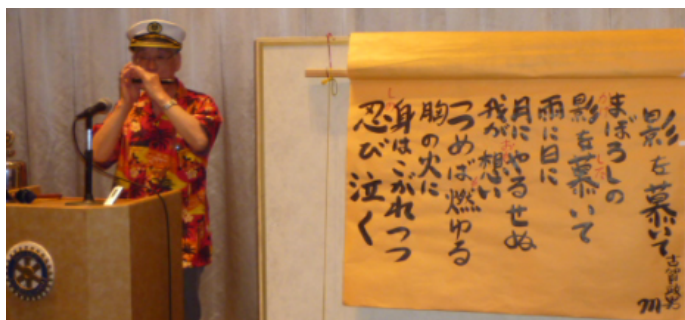 影を慕いて
まぼろしの
影を慕いて
雨に日に
月にやるせぬ
我が想い
つつめば燃ゆる
胸の火に
身はこがれつつ
忍び泣く